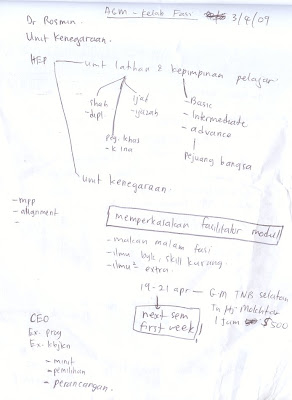 AGM - Kelab Fasi 3/4/09
Dr Rosmin
Unit Kenegaraan.
HEP
unit latihan & kepimpinan pelajar
shah
- dipl.
ijat
- ijazah
- Basic
- Intermediate
- advance
Pejuang bangsa
peg. khas
unit kenegaraan.
- mpp
- alignment
-
memperkasakan fasilitator modul
- makan malam fasi
- ilmu byk, skill kurang
- ilmu² extra.
19-21 apr — GM TNB selatan
Tn Hj Mokhtar
1 jam $500
next sem
first week
CEO
Ex. prog
Ex. kbjkn
- minit
- pemilihan
- perancangan.